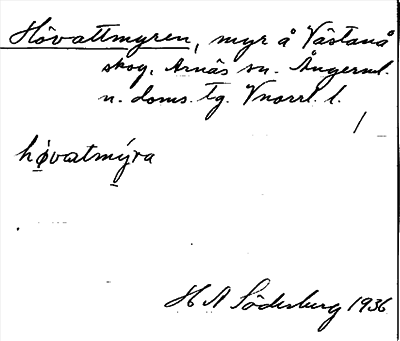 Hövattmyren, myr å Västanå
skog, Arnäs sn. Ångerml.
n. doms. tg. Vnorrl. l.
høvatmýra
H A Söderberg 1936